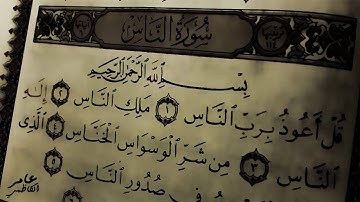 سُورَةُ النَّاسِ
بِسْمِ اللَّهِ الرَّحْمَٰنِ الرَّحِيمِ
قُلْ أَعُوذُ بِرَبِّ النَّاسِ ١ مَلِكِ النَّاسِ ٢ إِلَٰهِ
النَّاسِ ٣ مِن شَرِّ الْوَسْوَاسِ الْخَنَّاسِ ٤ الَّذِي
فِي صُدُورِ النَّاسِ ٥
عامر
الكاظمي